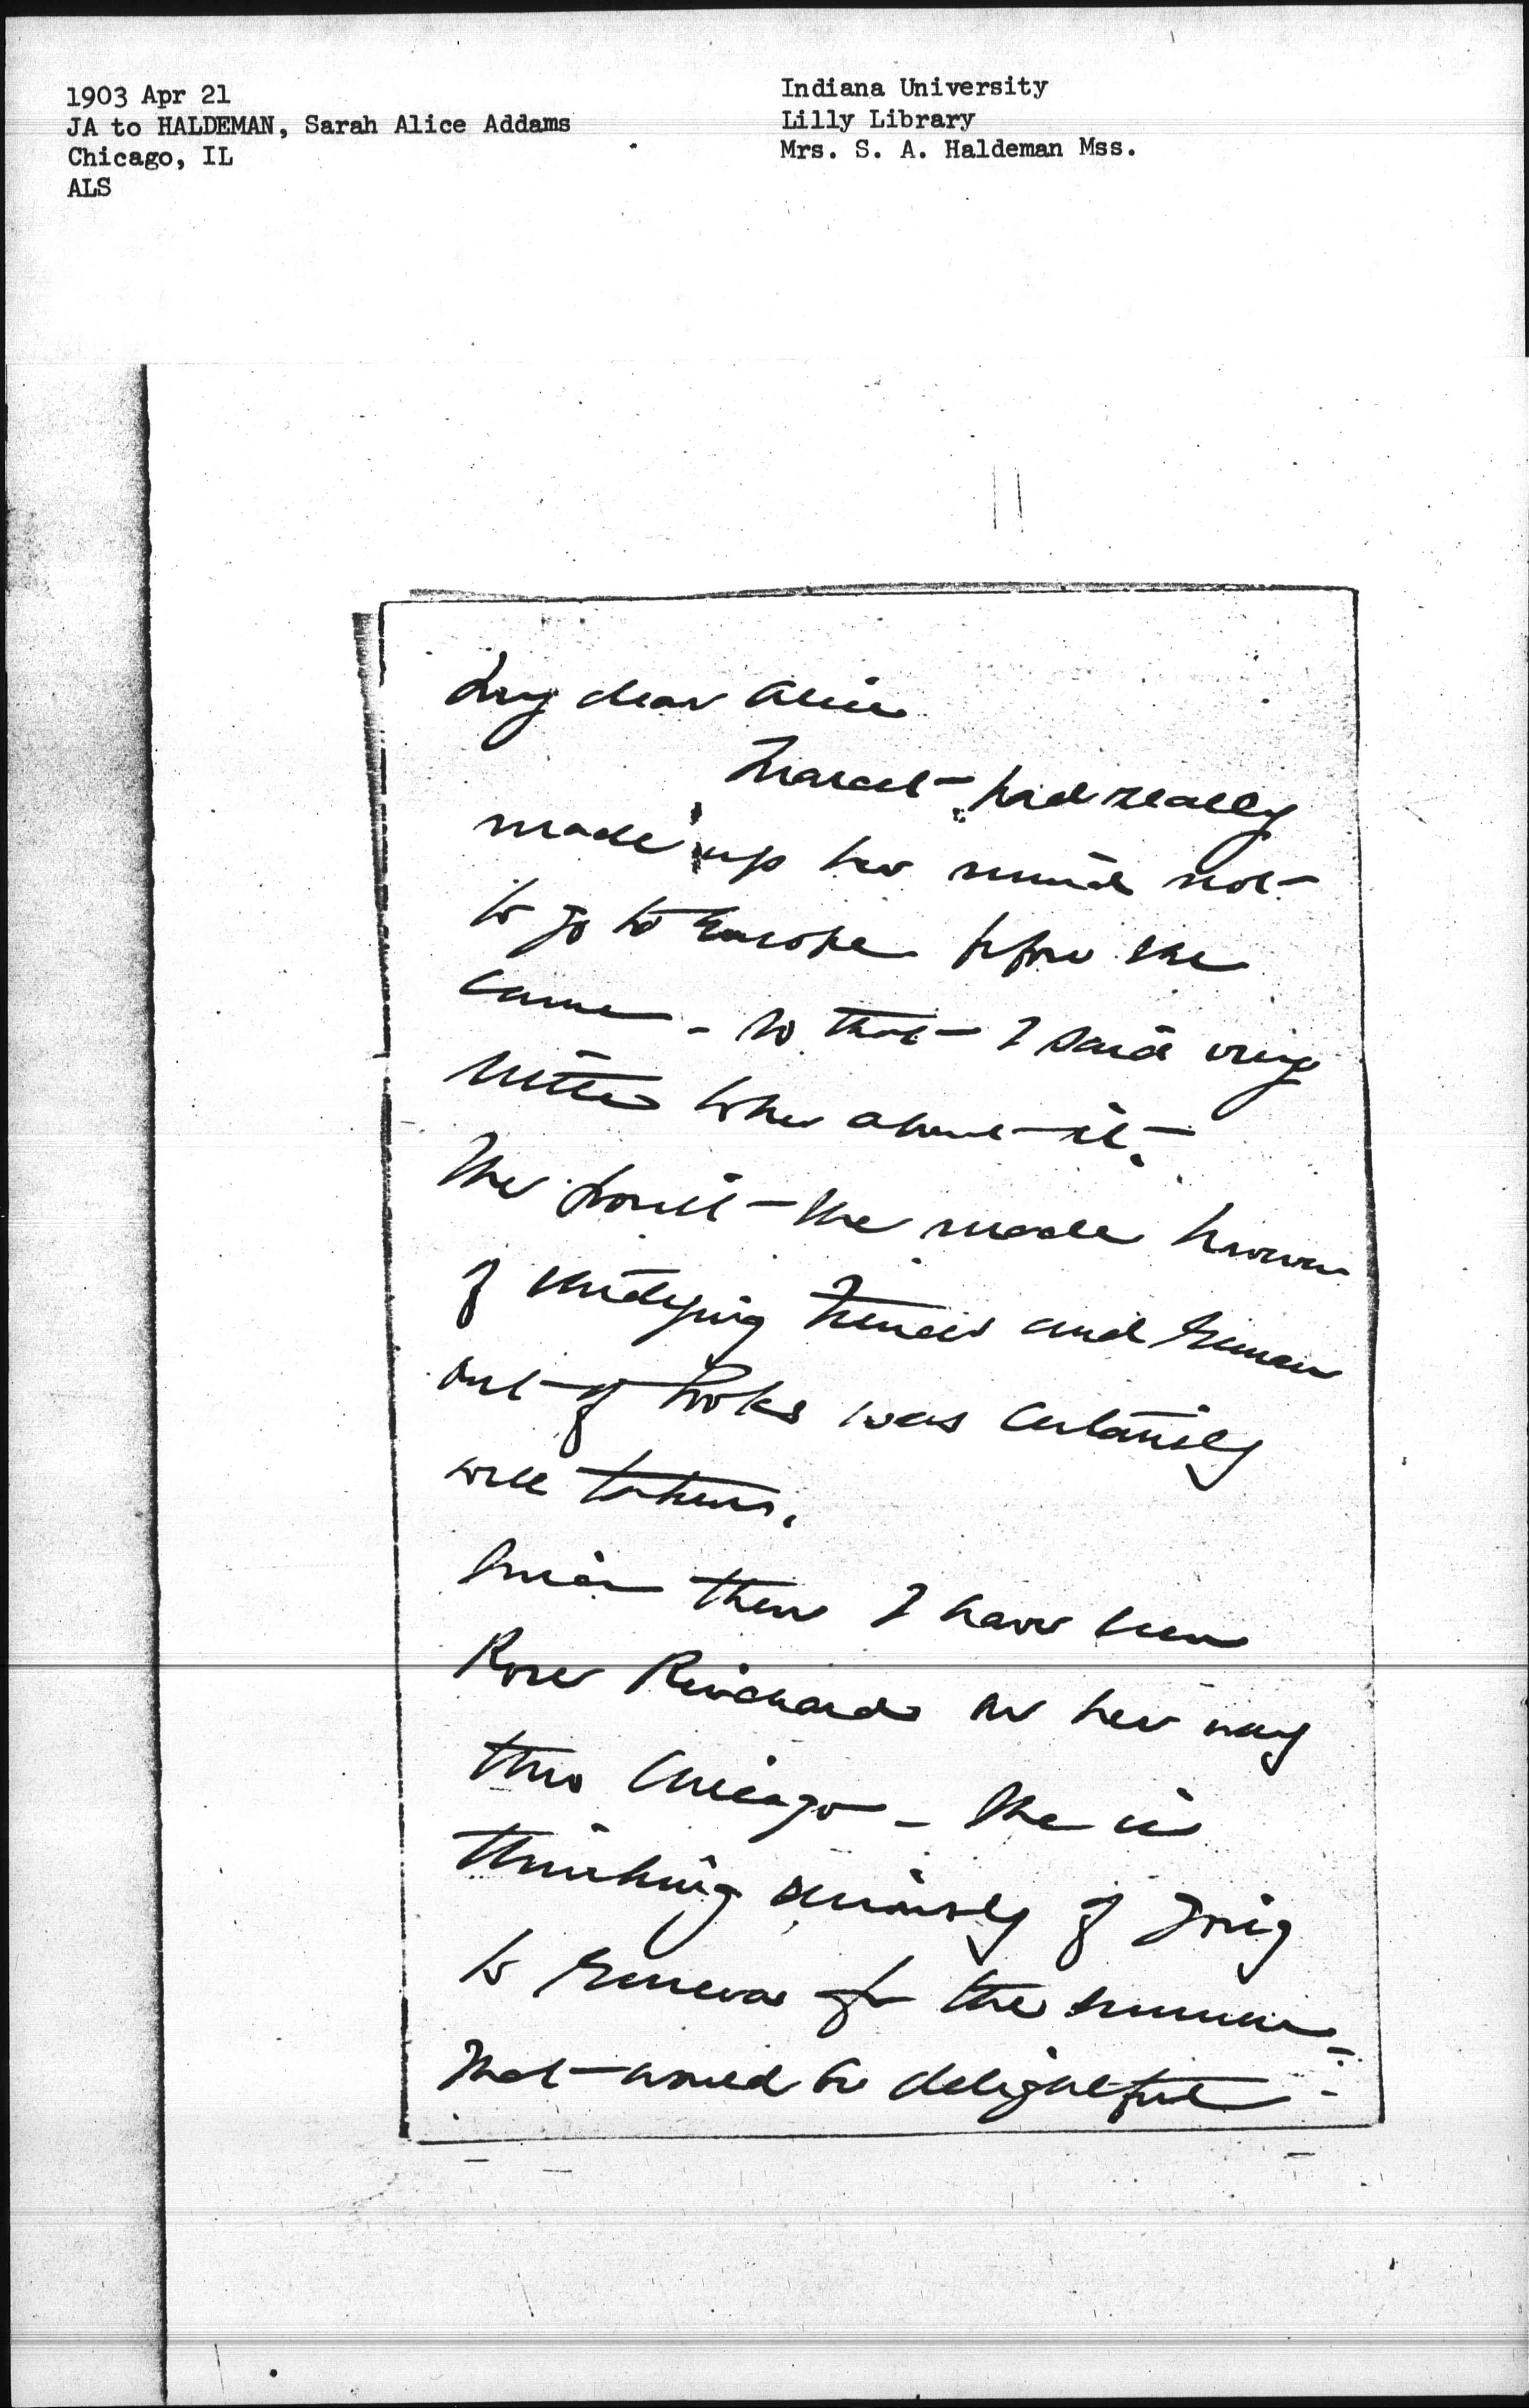 1903 Apr 21
JA to HALDEMAN, Sarah Alice Addams
Chicago, IL
ALS
Indiana University
Lilly Library
Mrs. S. A. Haldeman Mss.
My dear Alice
Marcet had really
made up her mind not
to go to Europe before she
came - so that I said very
little to her about it.
The point she made however
of studying French and German
out of books was certainly
well taken.
Since then I have seen
Rose on her way
thro Chicago - She is
thinking seriously of going
to Geneva for the summer -
That would be delightful -